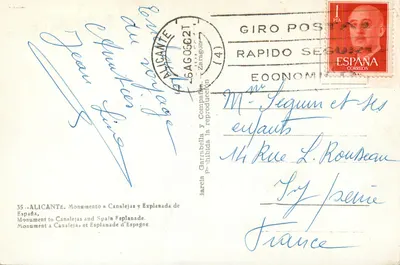 En
du voyage
Amitiés
Jean
ALICANTE
(4)
GIRO POSTAL
RAPIDO SEGURO
ECONOMICO
1 PTA
ESPAÑA
CORREOS
Mme Seguin et ses
enfants
14 Rue L. Rousseau
France
García Garrabella y Compañía - Zaragoza
Prohibida la reproducción
35 - ALICANTE. Monumento a Canalejas y Esplanada de
España.
Monument to Canalejas and Spain Esplanade.
Monument a Canalejas et Esplanade d'Espagne